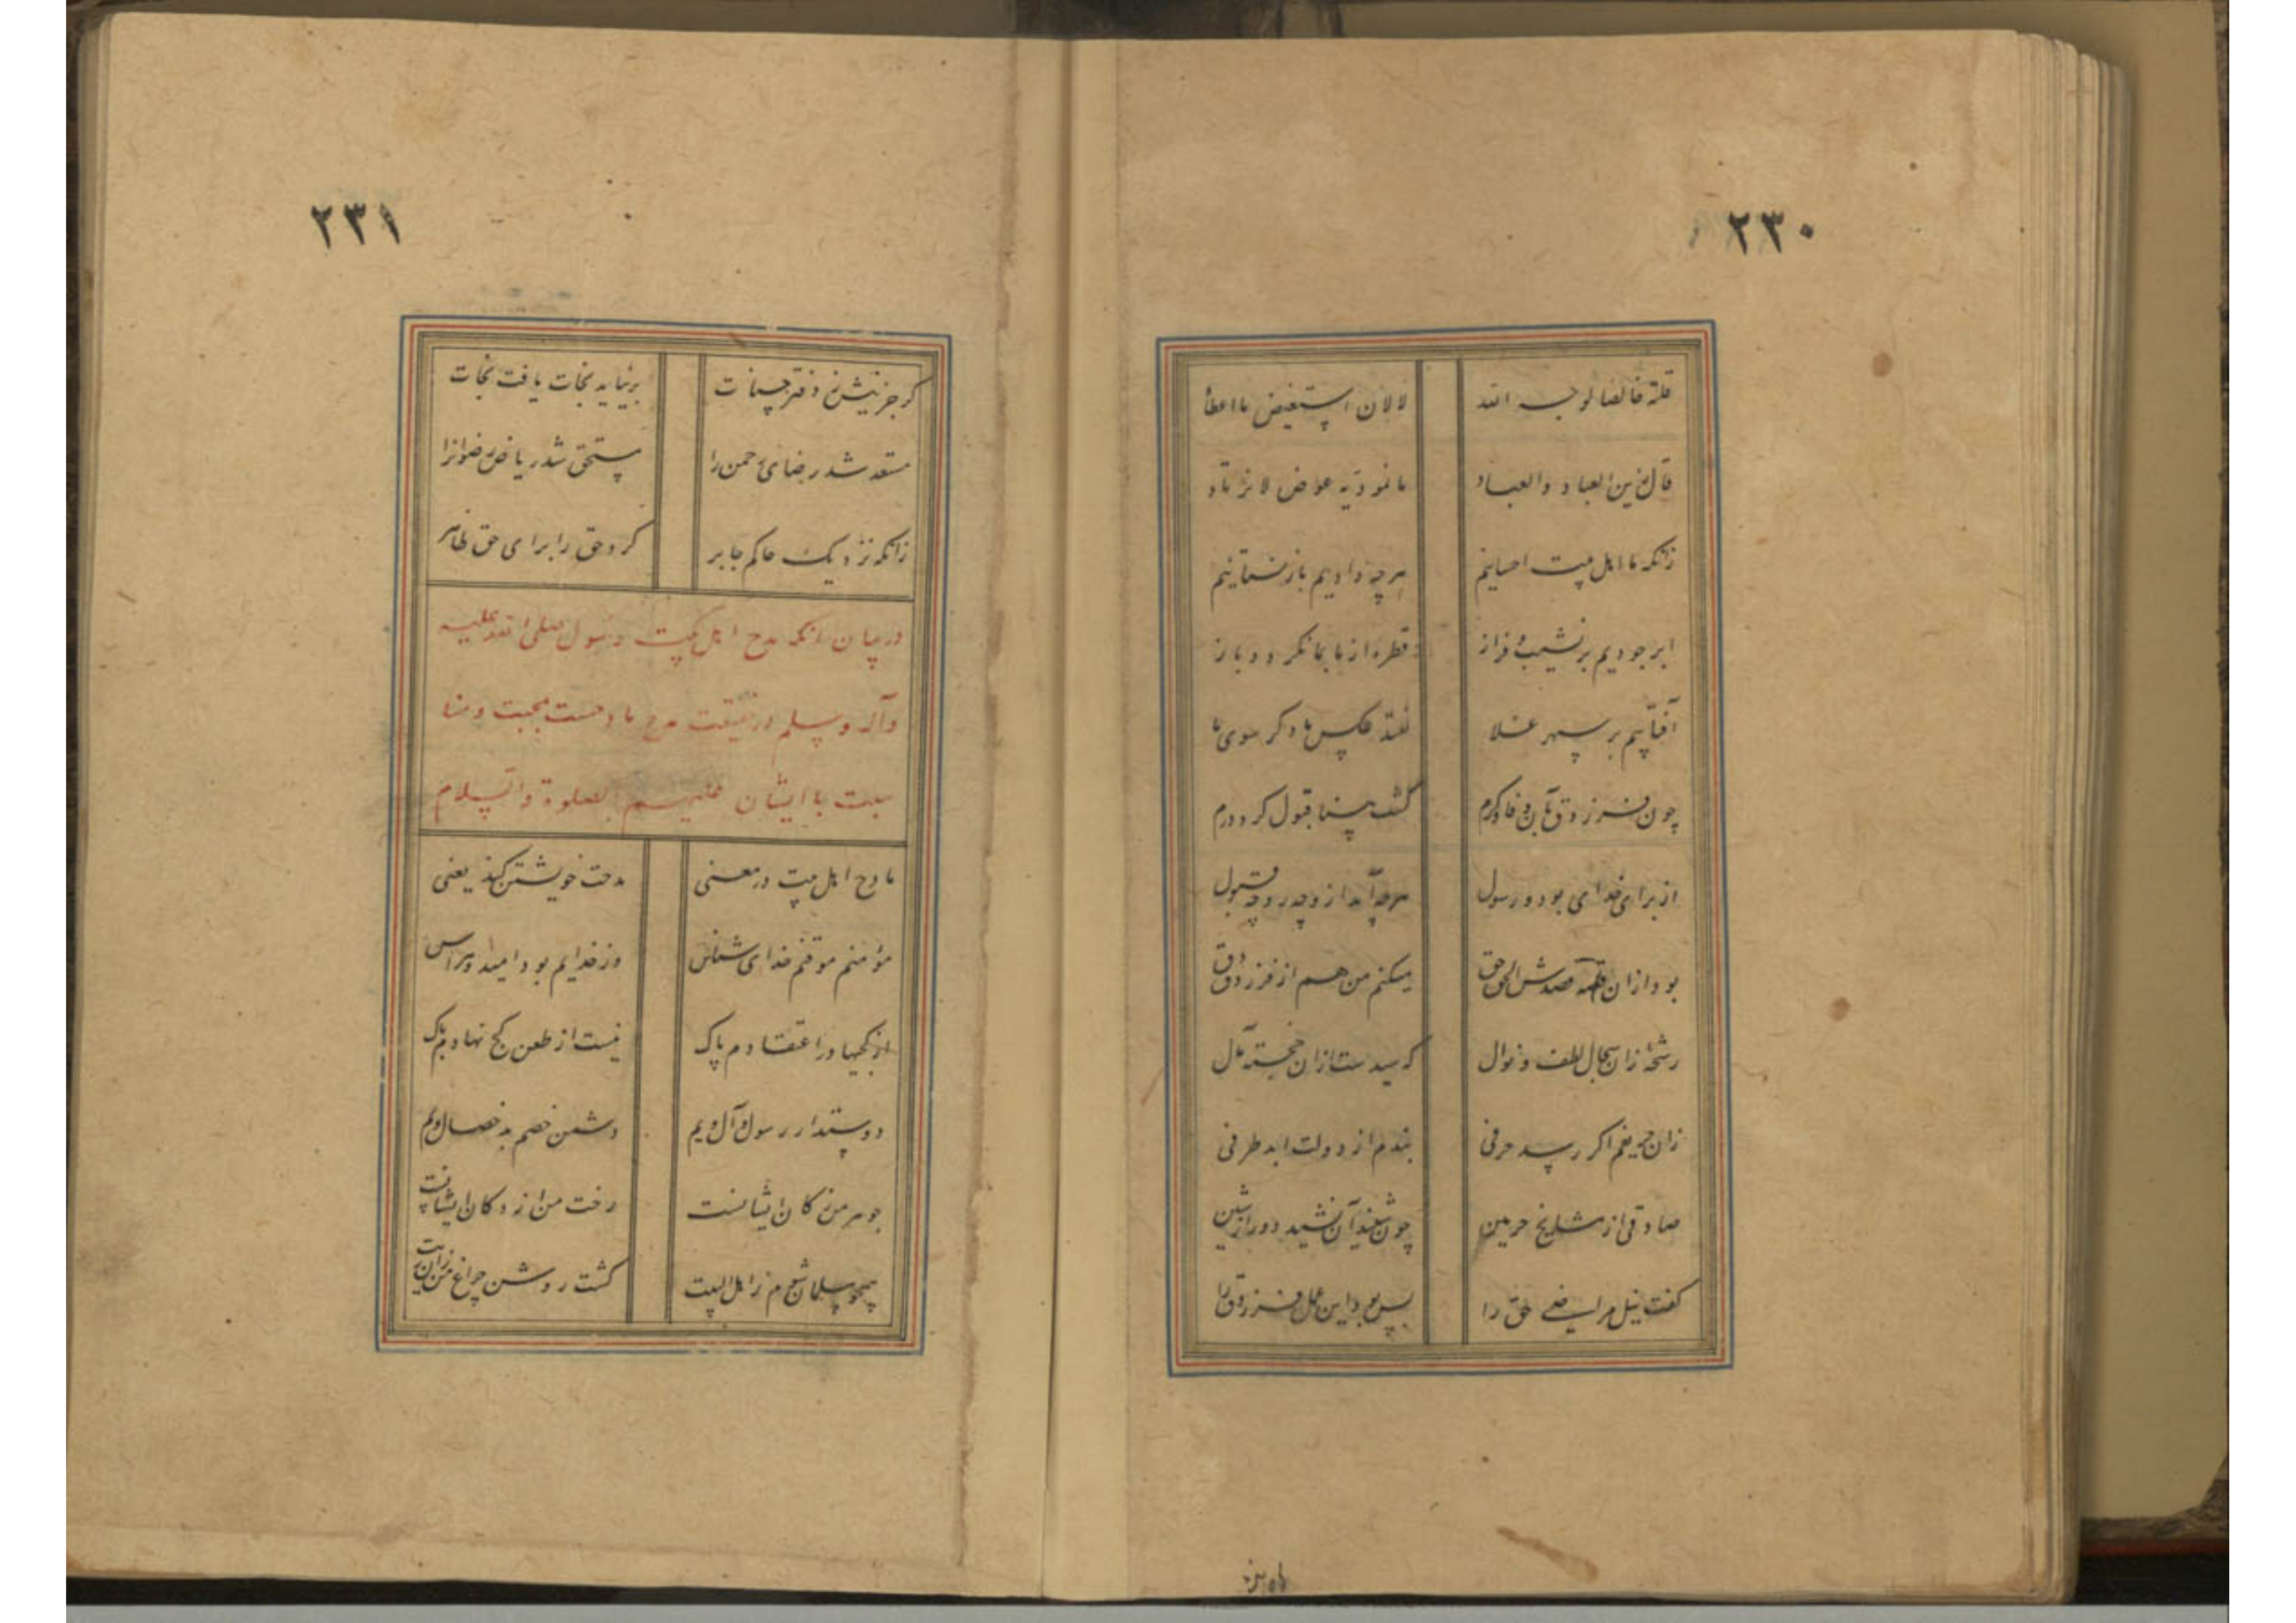 ۲۳۰
قلته خالصا لوجه الله
لا لان استفیض ما اعطاه
قال زین العباد والعباد
ما نودّیه عوض لا نرتاد
زانکه ما اهل بیت احسانیم
هرچه دادیم باز نستانیم
ابر جودیم بر نشیب و فراز
قطره از ما بما نکردد باز
آفتابیم بر سپهر علا
نفتد عکس ما دکر سوی ما
چون فرزدق بآن وفا و کرم
کشت بینا قبول کرد درم
از برای خدای بود و رسول
هرچه آمد ازو چه رد چه قبول
بود ازان هر دو قصدش الحق حق
میکنم من هم از فرزدق دق
رشحهٔ زان سجال لطف و نوال
که رسیدست ازان خجسته مآل
زان حریفم اکر رسد حرفی
بندم از دولت ابد طرفی
صادقی از مشایخ حرمین
چون شنید آن نشید دور از شین
کفت نیل مراضی حق را
بس بود این عمل فرزدق را
۲۳۱
کر جز اینش ز دفتر حسنات
بر نیاید نجات یافت نجات
مستعد شد رضای رحمن را
مستحق شد ریاض رضوانرا
زانکه نزدیک حاکم جابر
کرد حق را برای حق ظاهر
در بیان آنکه مدح اهل بیت رسول صلی الله علیه
وآله وسلم در حقیقت مدح مادحست بمحبت و منا
سبت با ایشان علیهم الصلوة والسلام
مادح اهل بیت در معنی
مدحت خویشتن کند یعنی
مؤمنم موقنم خدای شناس
وز خدایم بود امید و هراس
از کجیها در اعتقادم پاک
نیست از طعن کج نهادم باک
دوستدار رسول و آل ویم
دشمن خصم بد خصال ویم
جوهر من ز کان ایشانست
رخت من از دکان ایشانست
همچو سلمان شدم ز اهل البیت
کشت روشن چراغ من زان زیت